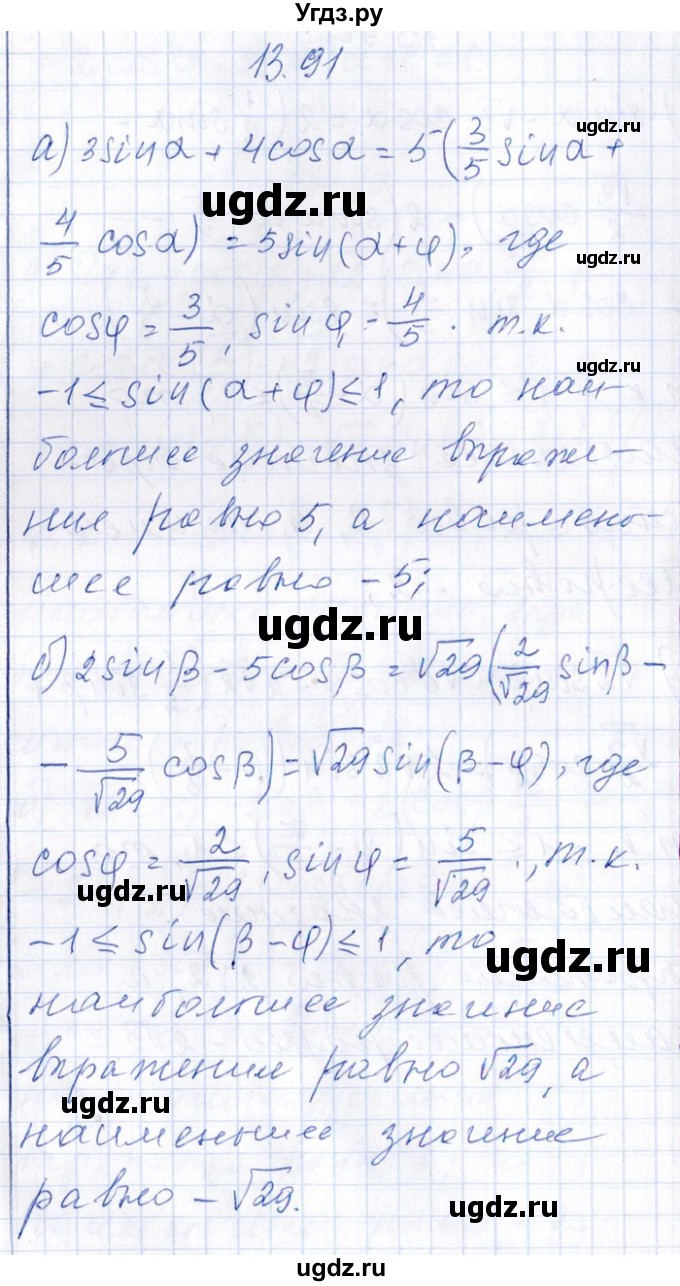 Угдз.ру
13.91
ugdz.ru
а) 3sinα + 4cosα = 5(3/5 sinα +
ugdz.ru
4/5 cosα) = 5sin(α+φ), где
ugdz.ru
cosφ = 3/5, sinφ = 4/5. т.к.
ugdz.ru
-1 ≤ sin(α+φ) ≤ 1, то наи-
большее значение выраже-
ugdz.ru
ния равно 5, а наимень-
шее равно -5;
ugdz.ru
ugdz.ru
б) 2sinβ - 5cosβ = √29(2/√29 sinβ -
- 5/√29 cosβ) = √29sin(β-φ), где
ugdz.ru
cosφ = 2/√29, sinφ = 5/√29., т.к.
ugdz.ru
-1 ≤ sin(β-φ) ≤ 1, то
ugdz.ru
наибольшее значение
выражения равно √29, а
ugdz.ru
наименьшее значение
равно -√29.
ugdz.ru
ugdz.ru